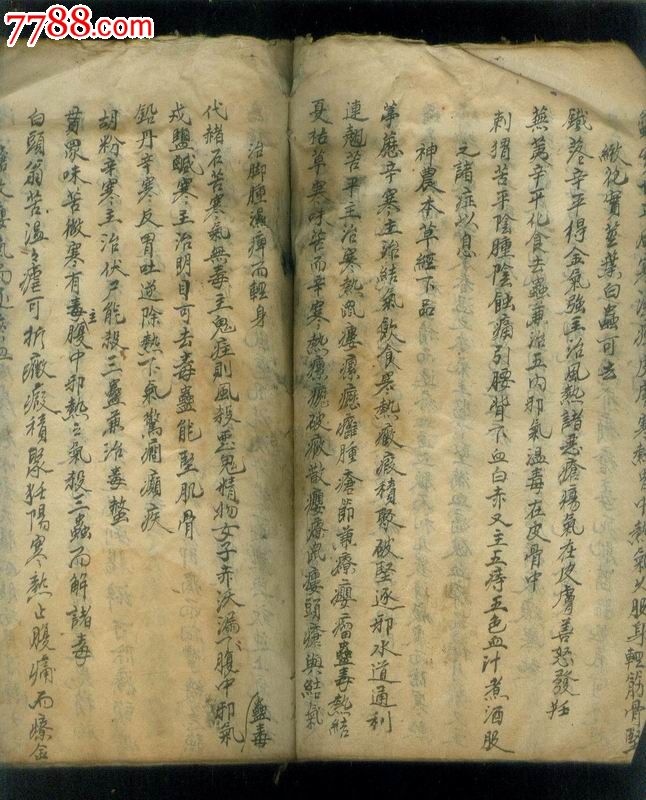 7788.com
緻視實莖葉白蟲可去
鐵落辛平得金氣強主治風熱諸惡瘡瘍氣在皮膚善怒發狂
蕪荑辛平化食去蟲兼治五內邪氣溫毒在皮骨中
刺猬苦平陰腫陰蝕痛引腰背下血白赤又主五痔五色血汁煮酒服
之諸症以息
神農本草經下品
葶藶辛寒主治結氣飲食寒熱癥瘕積聚破堅逐邪水道通利
連翹苦平主治寒熱鼠瘻瘰癧癰腫瘡節兼療癭瘤蠱毒熱結
夏枯草寒味苦而辛寒熱瘰癧破癥散癭療鼠瘻頭瘡與結氣
治脚腫濕痺而輕身
代赭石苦寒氣無毒主鬼疰則風殺惡鬼精物女子赤沃漏腹中邪氣
蠱毒
戎鹽鹹寒主治明目可去毒蠱能堅肌骨
鉛丹辛寒反胃吐逆除熱下氣驚癇癲疾
胡粉辛寒主治伏尸能殺三蟲兼治毒螫
貫眾味苦微寒有毒主腹中邪熱之氣殺三蟲而解諸毒
白頭翁苦溫溫瘧可折癥瘕積聚狂陽寒熱止腹痛而療金